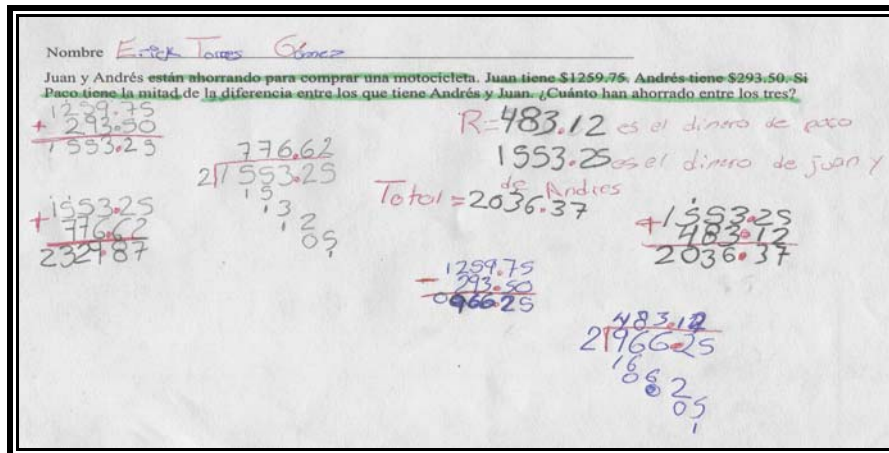 Nombre Erick Torres Gómez
Juan y Andrés están ahorrando para comprar una motocicleta. Juan tiene $1259.75. Andrés tiene $293.50. Si
Paco tiene la mitad de la diferencia entre los que tiene Andrés y Juan. ¿Cuánto han ahorrado entre los tres?
1259.75
+ 293.50
1553.25
776.62
2 1553.25
15
13
12
05
1
1553.25
+ 776.62
2329.87
R=483.12 es el dinero de paco
1553.25 es el dinero de juan y
de Andres
Total = 2036.37
1553.25
+ 483.12
2036.37
1259.75
- 293.50
0966.25
483.12
2 966.25
16
06
02
05
1